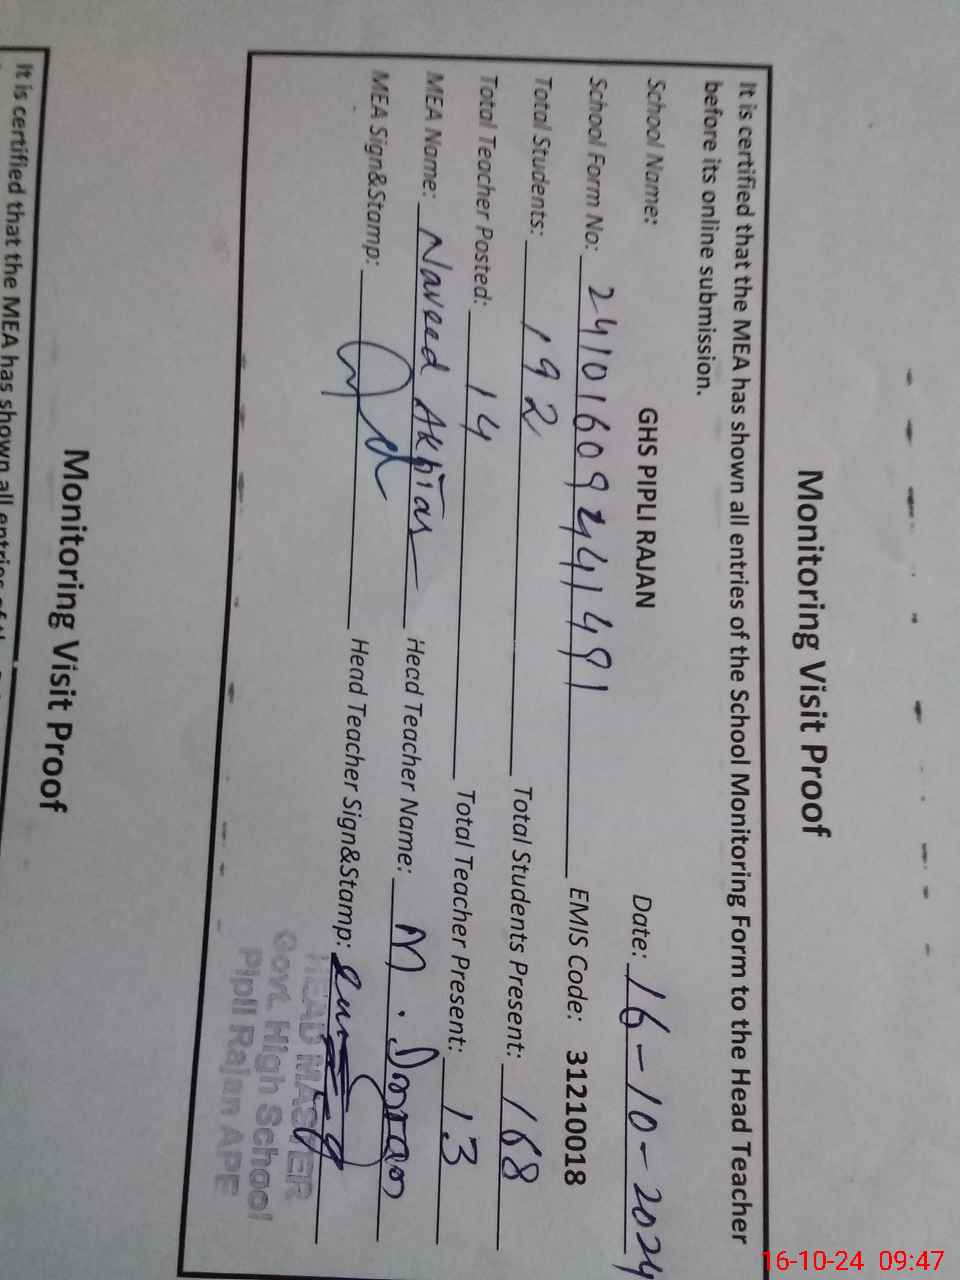 Monitoring Visit Proof
It is certified that the MEA has shown all entries of the School Monitoring Form to the Head Teacher
before its online submission.
School Name: GHS PIPLI RAJAN Date: 16-10-2024
School Form No: 241016092441491 EMIS Code: 31210018
Total Students: 192 Total Students Present: 168
Total Teacher Posted: 14 Total Teacher Present: 13
MEA Name: Naveed Akhtar Head Teacher Name: M.
MEA Sign&Stamp: Head Teacher Sign&Stamp:
HEAD MASTER
Govt. High School
Pipli Rajan APE
Monitoring Visit Proof
It is certified that the MEA has shown all entries of the
16-10-24 09:47